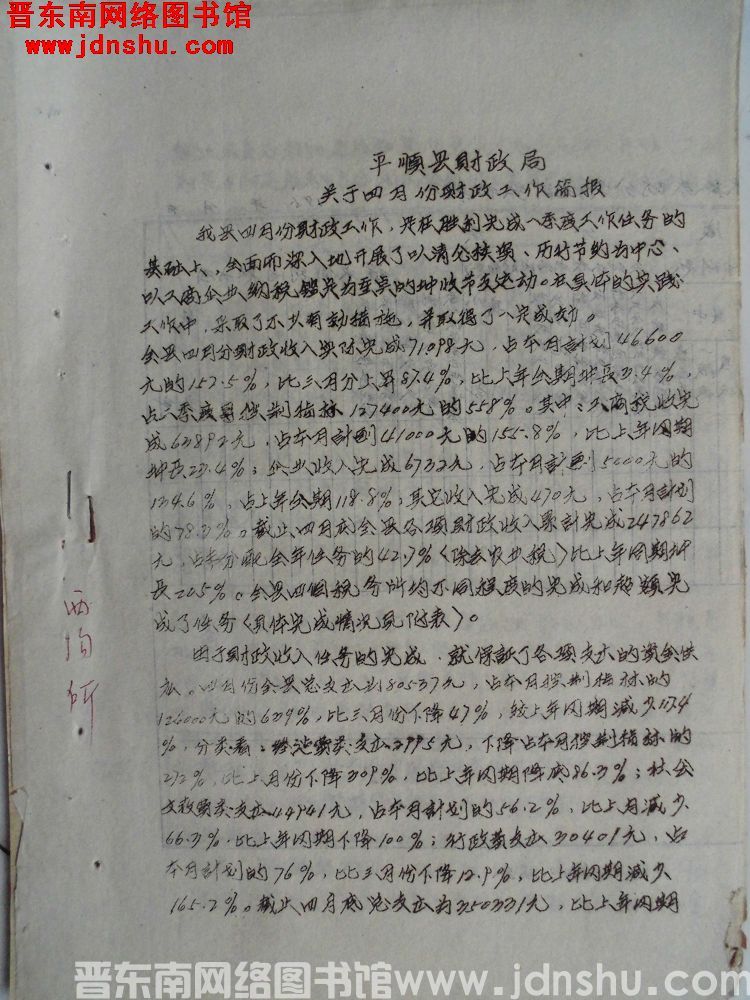 晋东南网络图书馆
www.jdnshu.com
平顺县财政局
关于四月份财政工作简报
我县四月份财政工作，是在胜利完成一季度工作任务的
基础上，全面而深入地开展了以清仓核资、厉行节约为中心、
以工商企业纳税鉴定为重点的增收节支运动。在具体的实践
工作中，采取了不少有效措施，并取得了一定成效。
全县四月分财政收入实际完成71098元，占本月计划46600
元的152.5%，比三月分上升87.4%，比上年全期增长21.4%，
占二季度控制指标127400元的55.8%。其中：工商税收完
成63892元，占本月计划41000元的155.8%，比上年同期
增长23.4%；企业收入完成6732元，占本月计划5000元的
134.6%，占上年全期118.8%；其它收入完成470元，占本月计划
的78.3%。截止四月底全县各项财政收入累计完成247862
元，占分配全年任务的42.7%（除去农业税）比上年同期增
长20.5%。全县四个税务所均不同程度的完成和超额完
成了任务（具体完成情况见附表）。
由于财政收入任务的完成，就保证了各项支出的资金供
应。四月份全县总支出为80537元，占本月控制指标的
126000元的63.9%，比三月份下降47%，较上年同期减少117.4
%，分类看：经济费类支出2995元，下降占本月控制指标的
27.2%，比上月份下降309%，比上年同期降低86.3%；社会
文教费类支出44941元，占本月计划的56.2%，比上月减少
66.3%，比上年同期下降100%；行政费支出30401元，占
本月计划的76%，比三月份下降12.9%，比上年同期减少
165.2%。截止四月底总支出为350331元，比上年同期
两均所
7
晋东南网络图书馆www.jdnshu.com